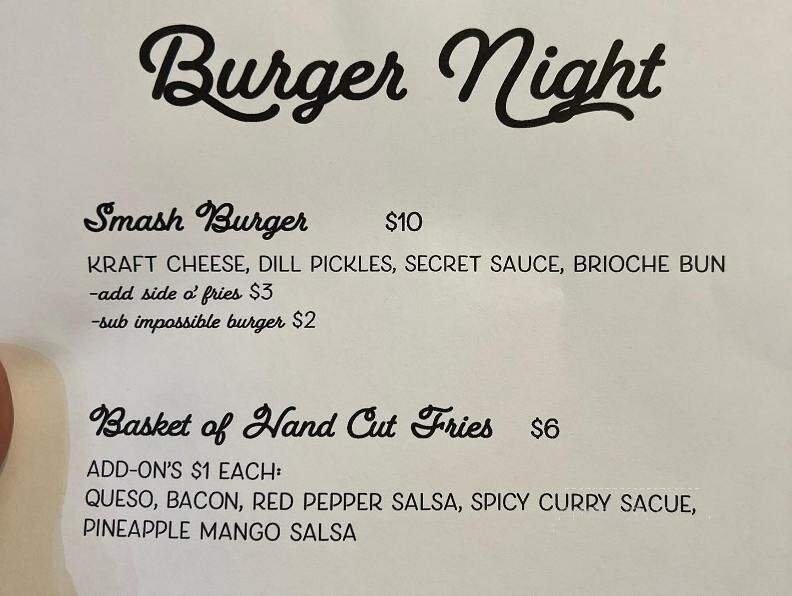 Burger Night
Smash Burger $10
KRAFT CHEESE, DILL PICKLES, SECRET SAUCE, BRIOCHE BUN
-add side o' fries $3
-sub impossible burger $2
Basket of Hand Cut Fries $6
ADD-ON'S $1 EACH:
QUESO, BACON, RED PEPPER SALSA, SPICY CURRY SACUE,
PINEAPPLE MANGO SALSA